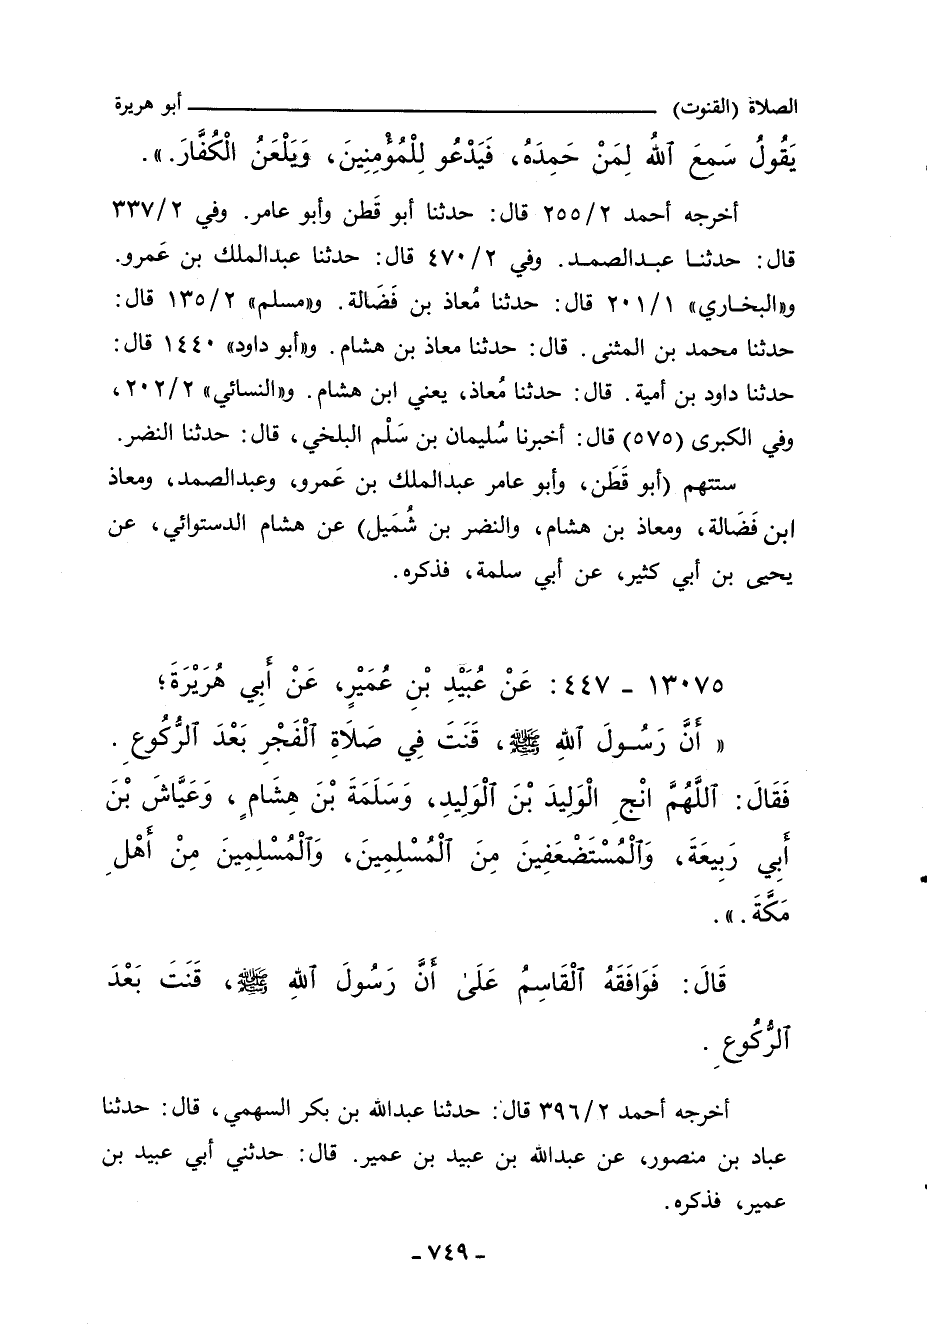 الصلاة (القنوت) ــــــــــــــــــــــــــــــــ أبو هريرة
يَقُولُ سَمِعَ ٱللهُ لِمَنْ حَمِدَهُ، فَيَدْعُو لِلْمُؤْمِنِينَ، وَيَلْعَنُ الْكُفَّارَ.».
أخرجه أحمد ٢/٢٥٥ قال: حدثنا أبو قَطن وأبو عامر. وفي ٢/٣٣٧
قال: حدثنا عبدالصمد. وفي ٢/٤٧٠ قال: حدثنا عبدالملك بن عَمرو.
و«البخاري» ١/٢٠١ قال: حدثنا مُعاذ بن فَضَالة. و«مسلم» ٢/١٣٥ قال:
حدثنا محمد بن المثنى. قال: حدثنا معاذ بن هشام. و«أبو داود» ١٤٤٠ قال:
حدثنا داود بن أمية. قال: حدثنا مُعاذ، يعني ابن هشام. و«النسائي» ٢/٢٠٢،
وفي الكبرى (٥٧٥) قال: أخبرنا سُليمان بن سَلْم البلخي، قال: حدثنا النضر.
ستتهم (أبو قَطَن، وأبو عامر عبدالملك بن عَمرو، وعبدالصمد، ومعاذ
ابن فَضَالة، ومعاذ بن هشام، والنضر بن شُمَيل) عن هشام الدستوائي، عن
يحيى بن أبي كثير، عن أبي سلمة، فذكره.
١٣٠٧٥ - ٤٤٧: عَنْ عُبَيْدِ بْنِ عُمَيْرٍ، عَنْ أَبِي هُرَيْرَةَ؛
« أَنَّ رَسُولَ ٱللهِ ﷺ، قَنَتَ فِي صَلَاةِ ٱلْفَجْرِ بَعْدَ ٱلرُّكُوعِ.
فَقَالَ: ٱللَّهُمَّ انْجِ الْوَلِيدَ بْنَ ٱلْوَلِيدِ، وَسَلَمَةَ بْنَ هِشَامٍ، وَعَيَّاشَ بْنَ
أَبِي رَبِيعَةَ، وَٱلْمُسْتَضْعَفِينَ مِنَ ٱلْمُسْلِمِينَ، وَٱلْمُسْلِمِينَ مِنْ أَهْلِ
مَكَّةَ.».
قَالَ: فَوَافَقَهُ ٱلْقَاسِمُ عَلَىٰ أَنَّ رَسُولَ ٱللهِ ﷺ، قَنَتَ بَعْدَ
ٱلرُّكُوعِ.
أخرجه أحمد ٢/٣٩٦ قال: حدثنا عبدالله بن بكر السهمي، قال: حدثنا
عباد بن منصور، عن عبدالله بن عبيد بن عمير. قال: حدثني أبي عبيد بن
عمير، فذكره.
- ٧٤٩ -